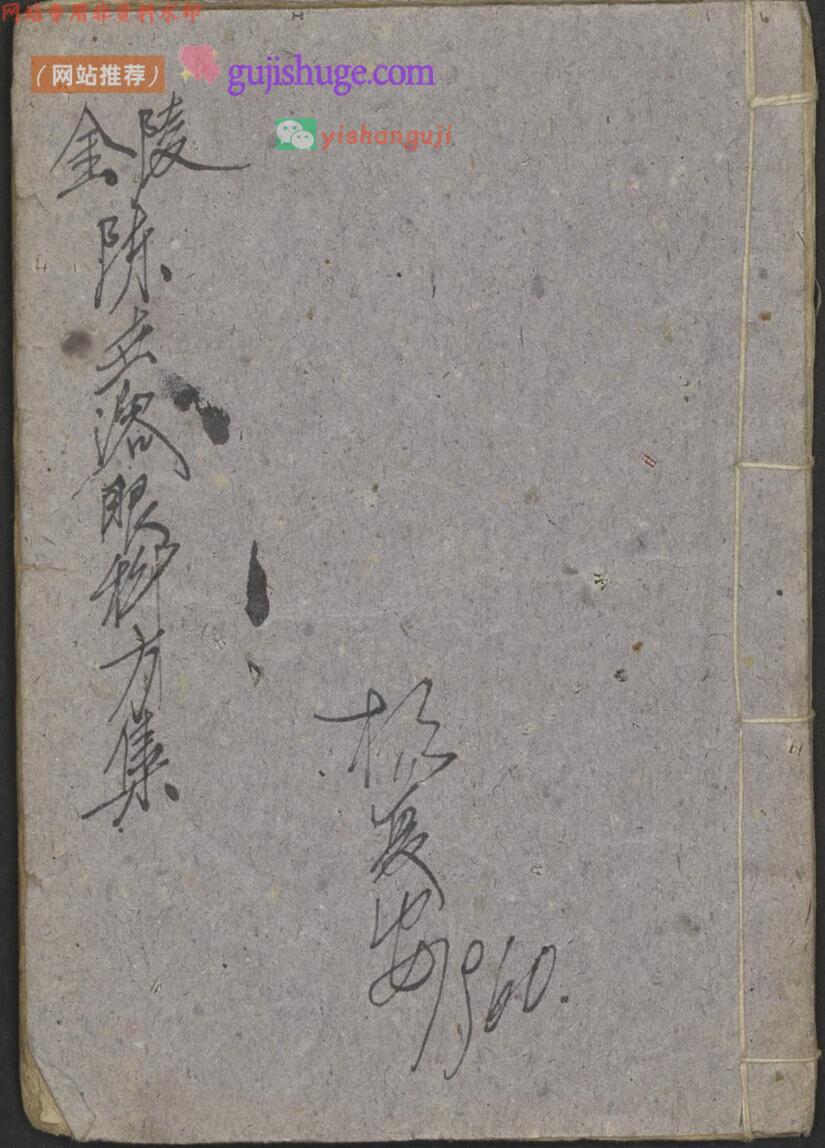 网站专用非资料水印
(网站推荐)
gujishuge.com
yishanguji
金陵
陈
眼科方集
夏安
1960.